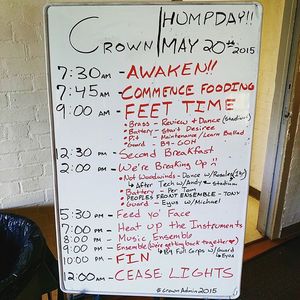 CROWN HUMPDAY!!
MAY 20th 2015
7:30 AM - AWAKEN!!
7:45 AM - COMMENCE FOODING
9:00 AM - FEET TIME
• Brass - Review + Dance (Stadium)
• Battery - Start Desiree
• Pit - Maintenance / Learn Ballad
• Guard - B9 - GOH
12:30 PM - Second Breakfast
2:00 PM - We're Breaking Up
• Not Woodwinds - Dance w/Rosalie
↳ After Tech w/Andy - Stadium
• Battery - Per Tom
• PEOPLES FRONT ENSEMBLE - TONY
• Guard - Eyus w/Michael
5:30 PM - Feed yo' Face
7:00 PM - Heat up the Instruments
8:00 PM - Music Ensemble
9:00 PM - Ensemble (We're getting back together)
Full Corps w/Guard
↳ Eyus
10:00 PM - FIN
12:00 AM - CEASE LIGHTS
© Crown Admin 2015